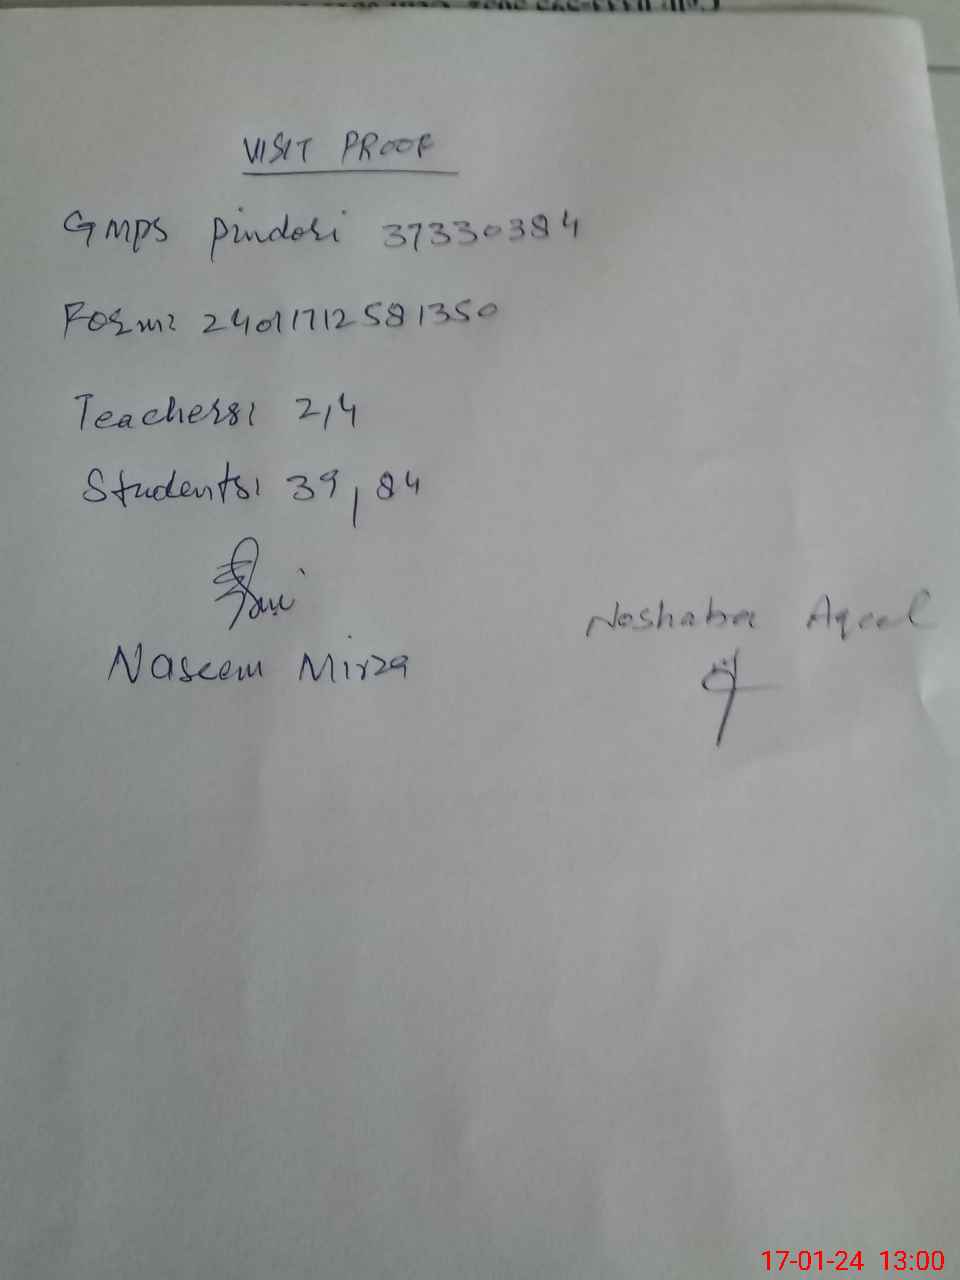 VISIT PROOF
GMPS Pindori 37330384
Form: 24011712581350
Teachers: 2,4
Students: 39,84
Naseem Mirza
Noshaba Aqeel
17-01-24 13:00